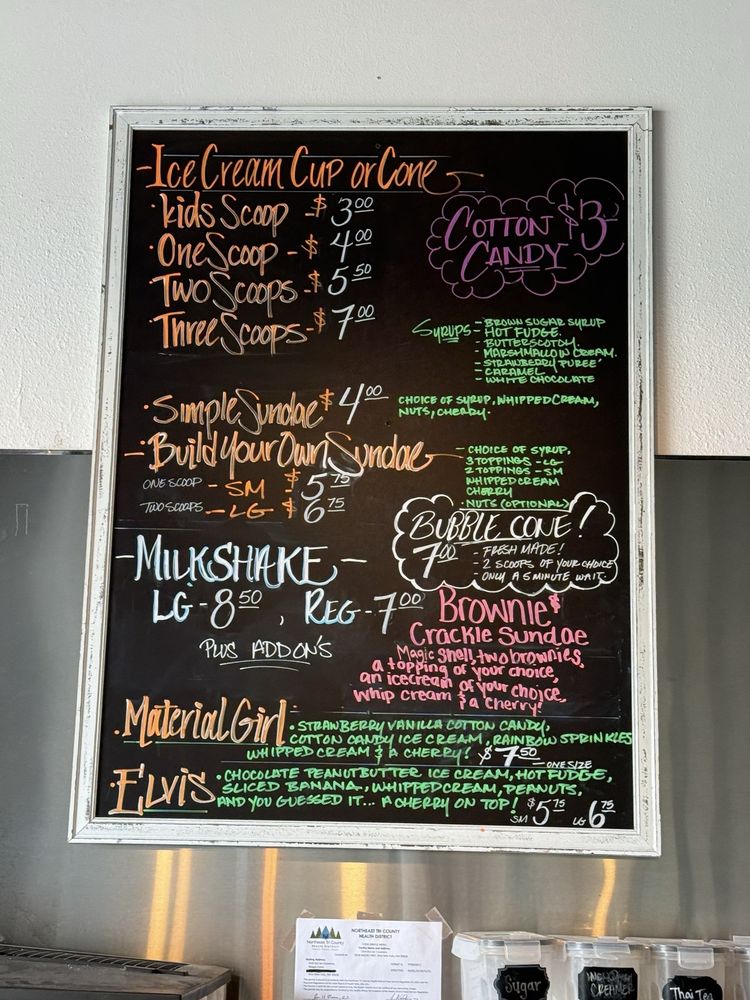 -Ice Cream Cup or Cone
·Kids Scoop - $3.00
·One Scoop - $4.00
·Two Scoops - $5.50
·Three Scoops - $7.00
COTTON $3-
CANDY
SYRUPS - BROWN SUGAR SYRUP
- HOT FUDGE.
- BUTTERSCOTCH.
- MARSHMALLOW CREAM.
- STRAWBERRY PUREE
- CARAMEL
- WHITE CHOCOLATE
·Simple Sundae $4.00
CHOICE OF SYRUP, WHIPPED CREAM,
NUTS, CHERRY.
- Build Your Own Sundae -
ONE SCOOP - SM - $5.75
TWO SCOOPS - LG - $6.75
CHOICE OF SYRUP,
3 TOPPINGS - LG
2 TOPPINGS - SM
WHIPPED CREAM
CHERRY
·NUTS (OPTIONAL)
BUBBLE CONE!
7.00 - FRESH MADE!
- 2 SCOOPS OF YOUR CHOICE
- ONLY A 5 MINUTE WAIT.
- MILKSHAKE -
LG - 8.50, REG - 7.00
PLUS ADD ON'S
Brownie $
Crackle Sundae
Magic Shell, two brownies,
a topping of your choice,
an icecream of your choice,
whip cream & a cherry!
·Material Girl · STRAWBERRY VANILLA COTTON CANDY,
COTTON CANDY ICE CREAM, RAINBOW SPRINKLES
WHIPPED CREAM & A CHERRY! $7.50 - ONE SIZE
·ELVIS · CHOCOLATE PEANUT BUTTER ICE CREAM, HOT FUDGE,
SLICED BANANA, WHIPPED CREAM, PEANUTS,
AND YOU GUESSED IT... A CHERRY ON TOP! SM $5.75 LG 6.75
NORTHEAST TRI COUNTY
HEALTH DISTRICT
Sugar
CREAMER
Thai Tea